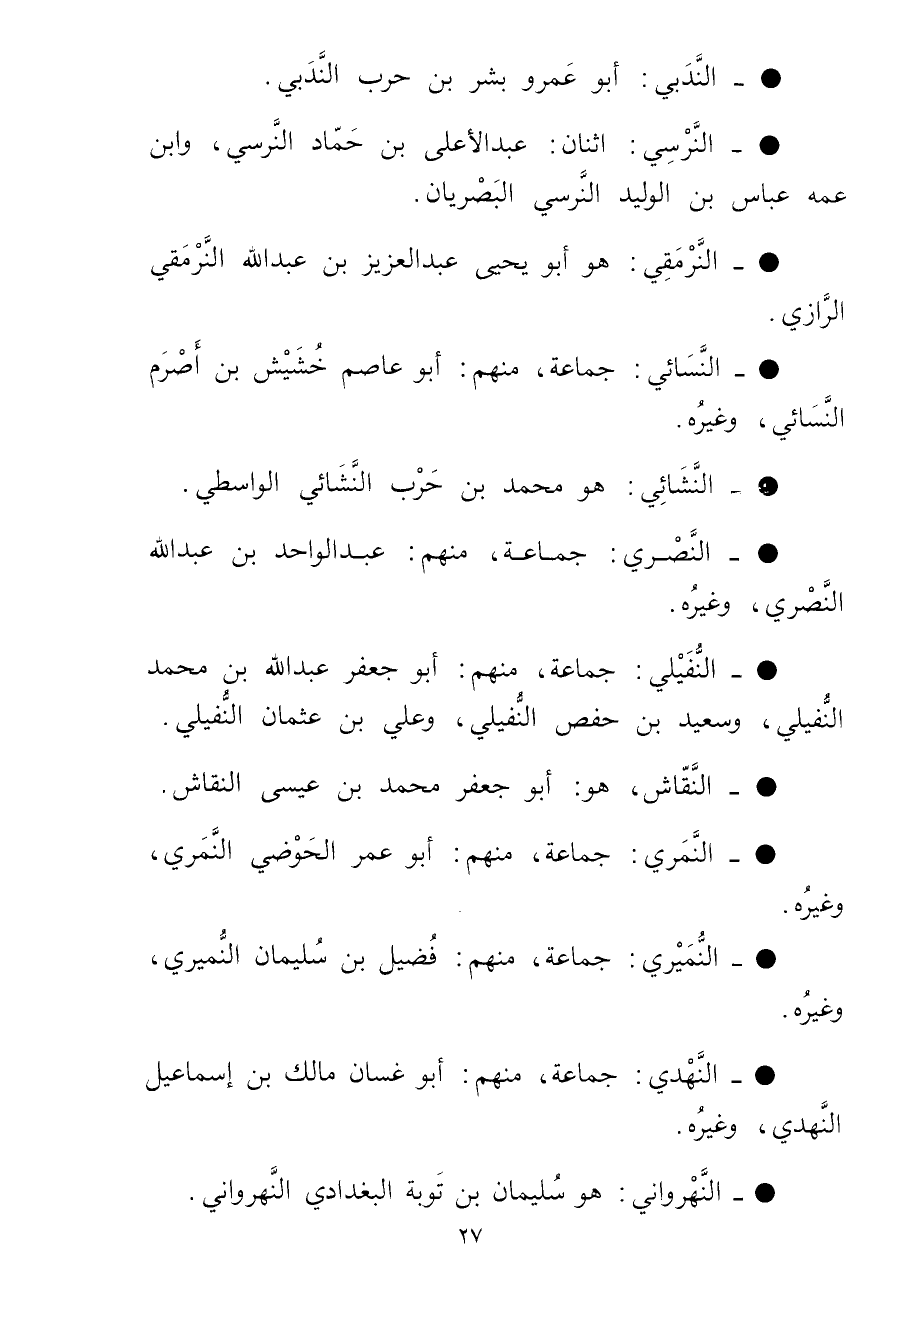 ● ـ النَّدَبي : أبو عَمرو بشر بن حرب النَّدَبي .
● ـ النَّرْسِي : اثنان : عبدالأعلى بن حَمّاد النَّرسي ، وابن
عمه عباس بن الوليد النَّرسي البَصْريان .
● ـ النَّرْمَقِي : هو أبو يحيى عبدالعزيز بن عبدالله النَّرْمَقي
الرَّازي .
● ـ النَّسَائي : جماعة ، منهم : أبو عاصم خُشَيْش بن أَصْرَم
النَّسَائي ، وغيرُه .
● ـ النَّشَائِي : هو محمد بن حَرْب النَّشَائي الواسطي .
● ـ النَّصْـري : جمـاعـة ، منهم : عبـدالواحد بن عبدالله
النَّصْري ، وغيرُه .
● ـ النُّفَيْلي : جماعة ، منهم : أبو جعفر عبدالله بن محمد
النُّفيلي ، وسعيد بن حفص النُّفيلي ، وعلي بن عثمان النُّفيلي .
● ـ النَّقّاش ، هو : أبو جعفر محمد بن عيسى النقاش .
● ـ النَّمَري : جماعة ، منهم : أبو عمر الحَوْضي النَّمَري ،
وغيرُه .
● ـ النُّمَيْري : جماعة ، منهم : فُضيل بن سُليمان النُّميري ،
وغيرُه .
● ـ النَّهْدي : جماعة ، منهم : أبو غسان مالك بن إسماعيل
النَّهدي ، وغيرُه .
● ـ النَّهْرواني : هو سُليمان بن تَوبة البغدادي النَّهرواني .
٢٧